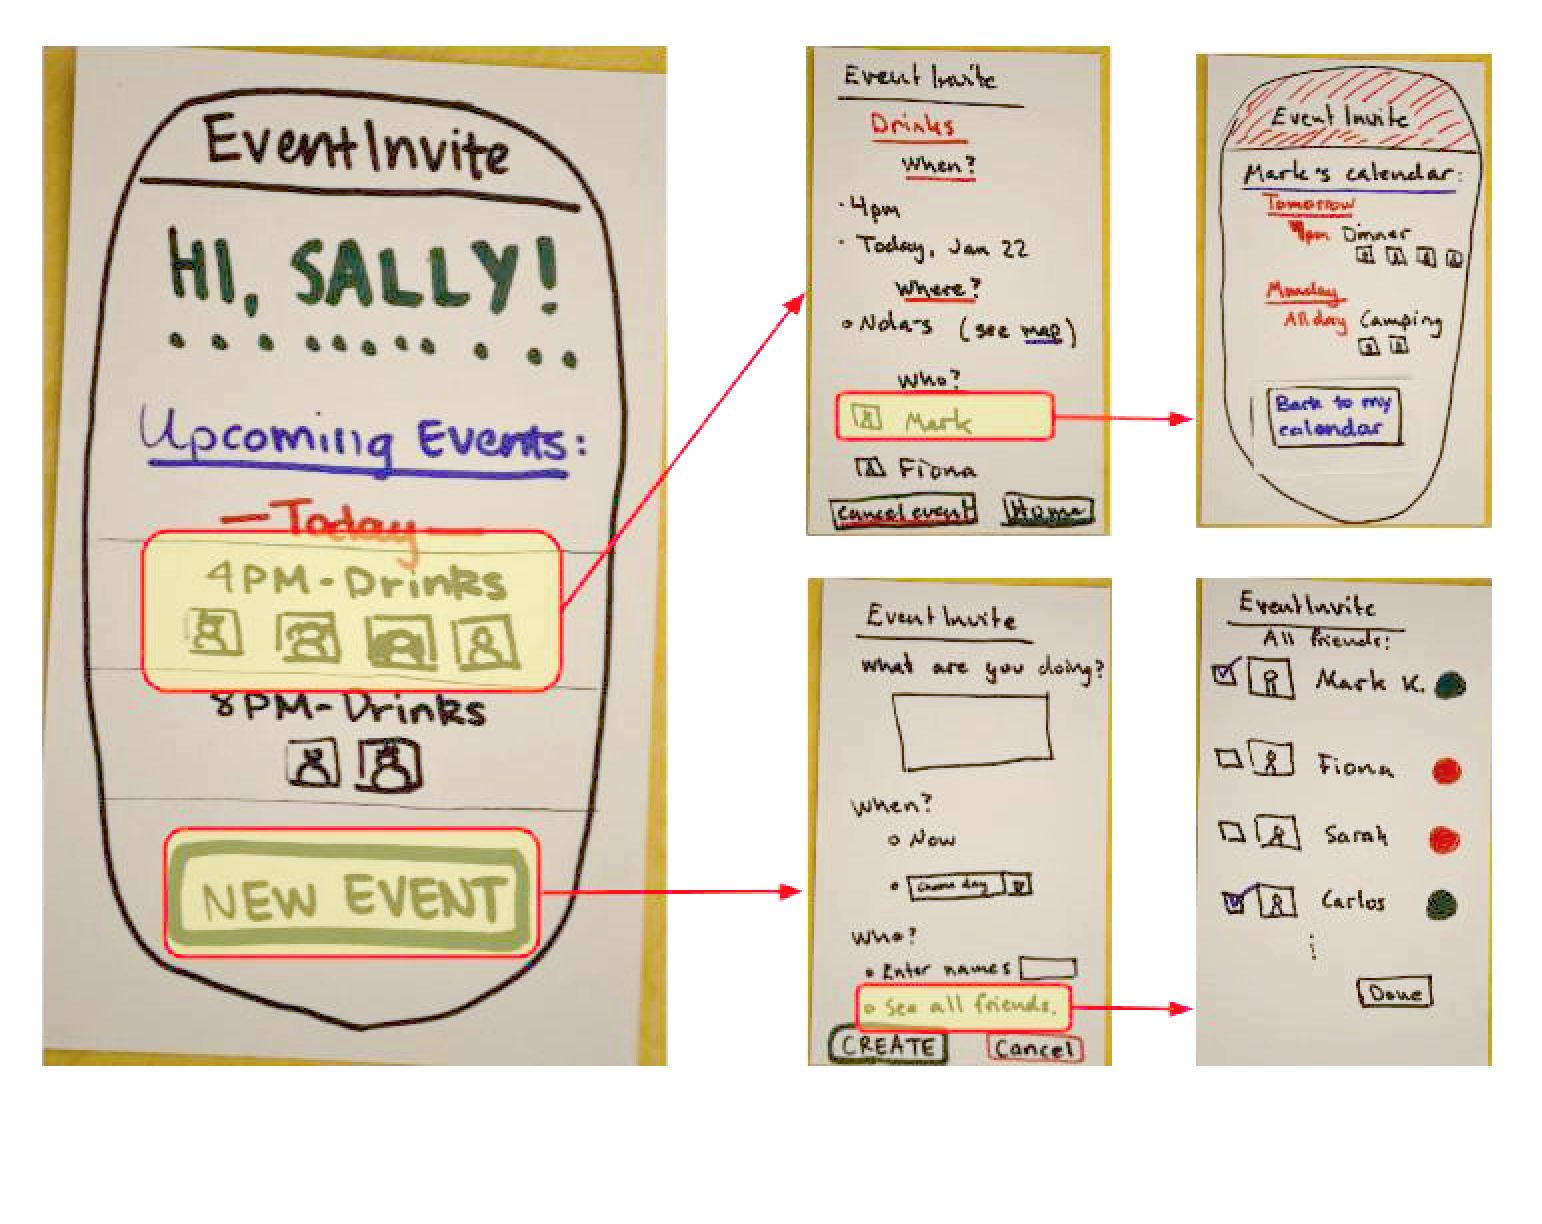 EventInvite
HI, SALLY!
Upcoming Events:
-Today-
4PM-Drinks
8PM-Drinks
NEW EVENT
Event Invite
Drinks
When?
4pm
Today, Jan 22
Where?
Nola's (see map)
Who?
Mark
Fiona
Cancel event Home
Event Invite
Mark's calendar:
Tomorrow
Dinner
Monday
All day Camping
Back to my
calendar
EventInvite
What are you doing?
When?
Now
Choose day
Who?
Enter names
See all friends.
CREATE Cancel
EventInvite
All friends:
Mark K.
Fiona
Sarah
Carlos
Done